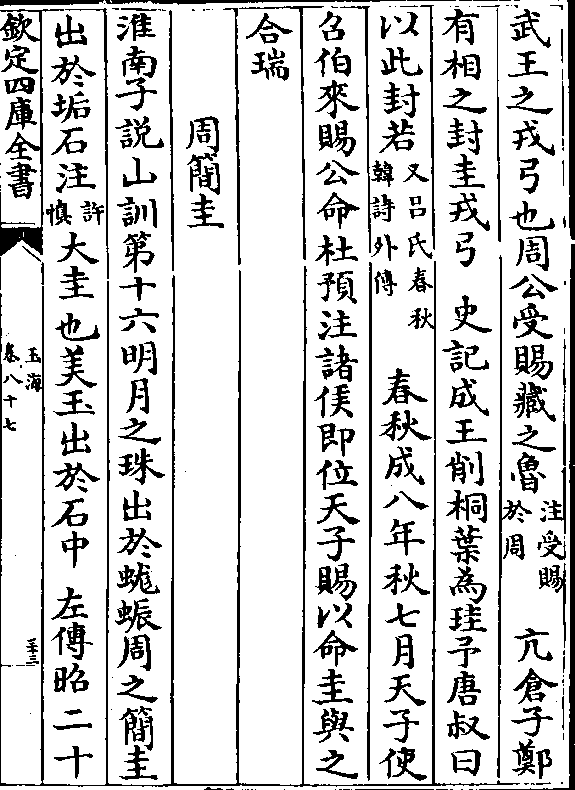 武王之戎弓也周公受賜藏之魯注受賜於周亢倉子鄭
有相之封圭戎弓 史記成王削桐葉為珪予唐叔曰
以此封若又呂氏春秋韓詩外傳 春秋成八年秋七月天子使
召伯來賜公命杜預注諸侯即位天子賜以命圭與之
合瑞
周簡圭
淮南子說山訓第十六明月之珠出於蛖蜄周之簡圭
出於垢石注許慎大圭也美玉出於石中 左傳昭二十
欽定四庫全書
玉海
卷八十七
三十三